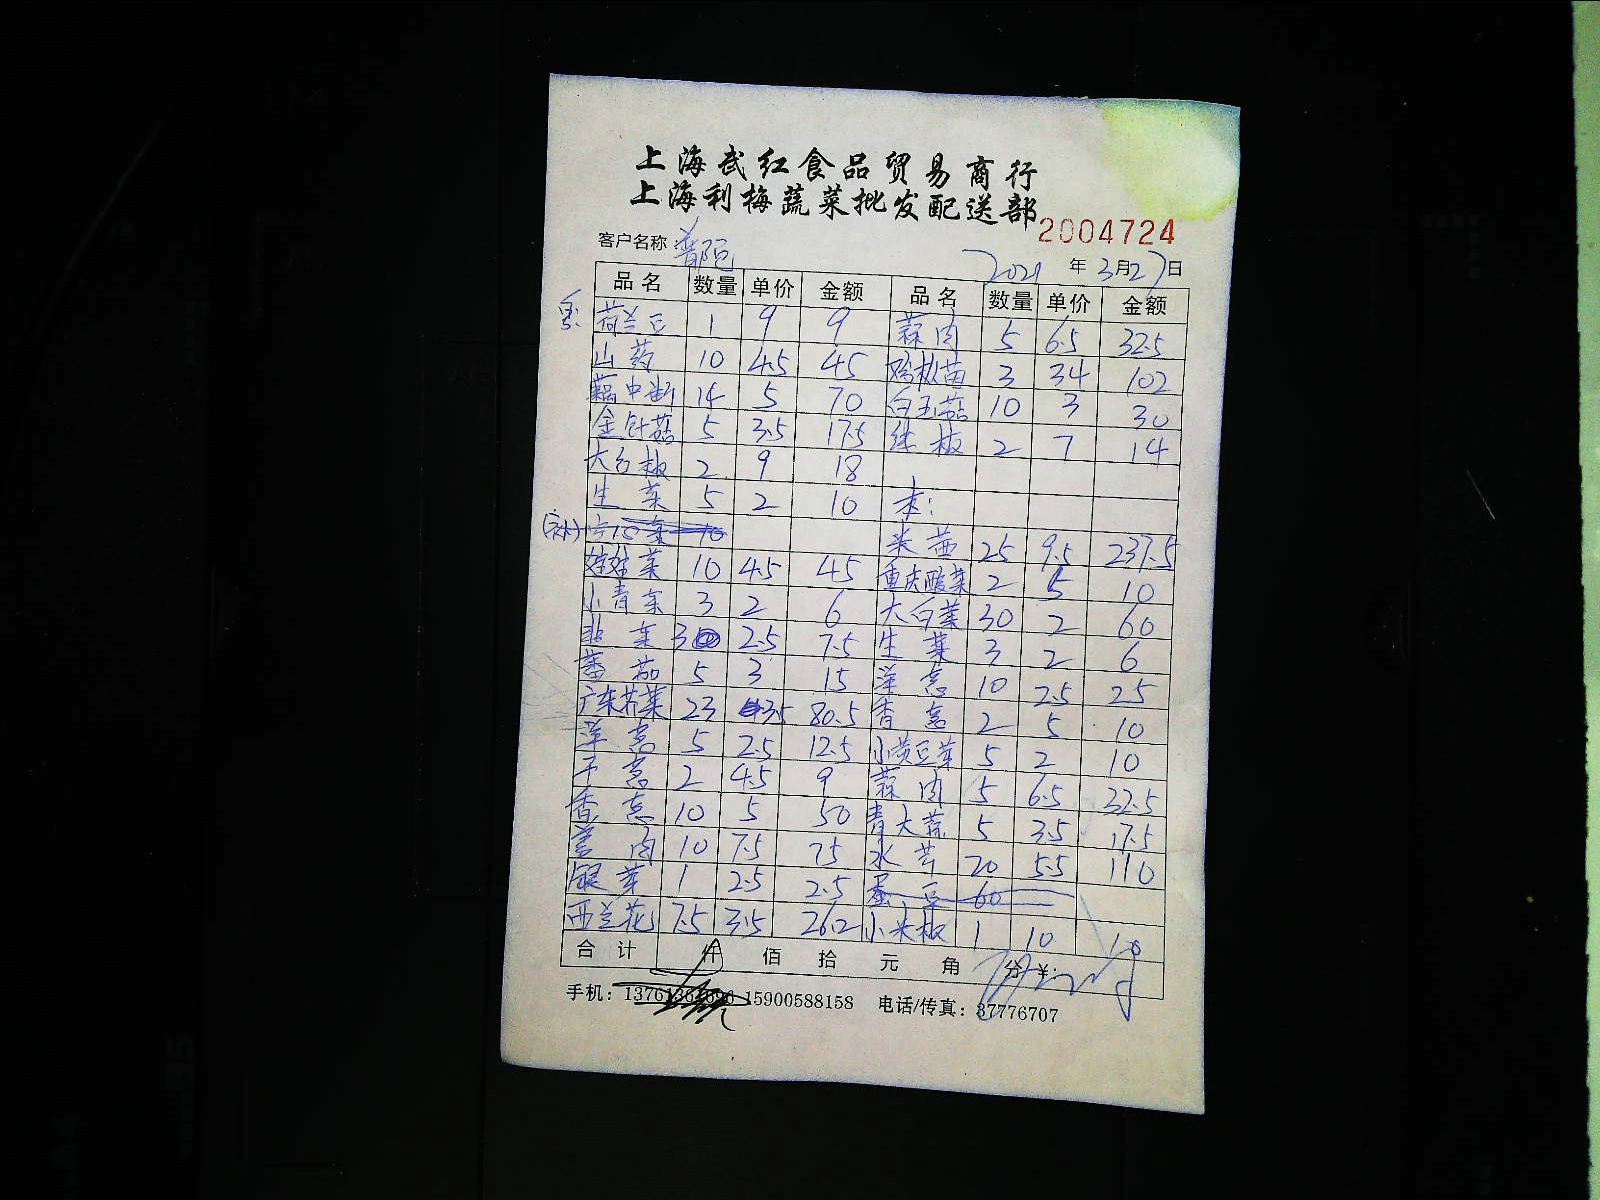 上海武红食品贸易商行
上海利梅蔬菜批发配送部
2004724
客户名称 普陀 2021 年 3月27日
品名 数量 单价 金额 品名 数量 单价 金额
荷兰豆 1 9 9 蒜肉 5 6.5 32.5
山药 10 4.5 45 鸡枞菌 3 34 102
藕中断 14 5 70 白玉菇 10 3 30
金针菇 5 3.5 17.5 红椒 2 7 14
大红椒 2 9 18
生菜 5 2 10 本:
10 米苋 25 9.5 237.5
娃娃菜 10 4.5 45 重庆酸菜 2 5 10
小青菜 3 2 6 大白菜 30 2 60
韭菜 3 2.5 7.5 生菜 3 2 6
番茄 5 3 15 洋葱 10 2.5 25
广东芥菜 23 3.5 80.5 香葱 2 5 10
洋葱 5 2.5 12.5 小黄豆芽 5 2 10
干葱 2 4.5 9 蒜肉 5 6.5 32.5
香葱 10 5 50 青大蒜 5 3.5 17.5
姜肉 10 7.5 75 水芹 20 5.5 110
银芽 1 2.5 2.5 蚕豆 60
西兰花 7.5 3.5 26.2 小米椒 1 10 10
合计 仟 佰 拾 元 角 分 ¥:
手机: 15900588158 电话/传真: 37776707